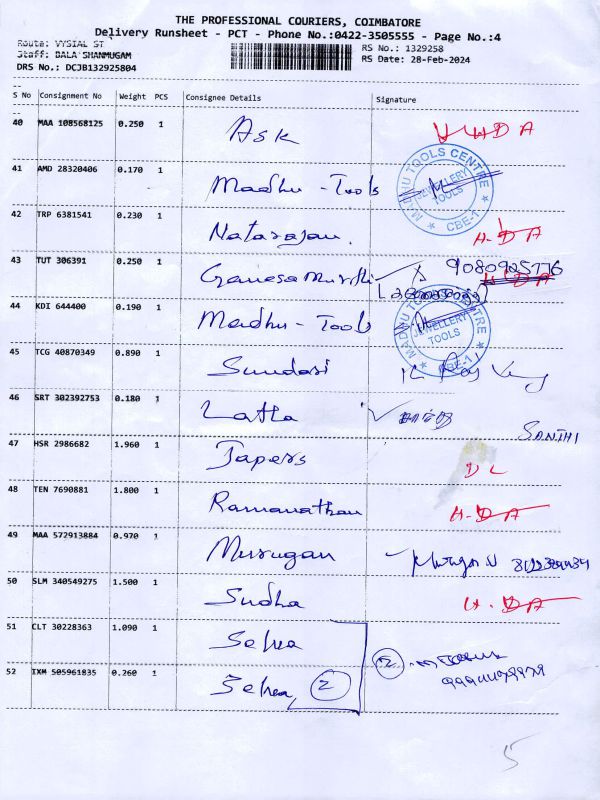 THE PROFESSIONAL COURIERS, COIMBATORE
Delivery Runsheet - PCT - Phone No.:0422-3505555 - Page No.:4
Route: VYSIAL ST
Staff: BALA SHANMUGAM
DRS No.: DCJB132925804
RS No.: 1329258
RS Date: 28-Feb-2024
S No Consignment No Weight PCS Consignee Details Signature
40 MAA 108568125 0.250 1 Ask H D A
41 AMD 28320406 0.170 1 Madhu - Tools
MADHU TOOLS CENTRE
JEWELLERY
TOOLS
CBE-1
42 TRP 6381541 0.230 1 Natarajan. H-DA
43 TUT 306391 0.250 1 Ganesa Murthi
44 KDI 644400 0.190 1 Madhu - Tools
MADHU TOOLS CENTRE
JEWELLERY
TOOLS
CBE-1
45 TCG 40870349 0.890 1 Sundari
46 SRT 302392753 0.180 1 Latha
SANTHI
47 HSR 2986682 1.960 1 Tapers D L
48 TEN 7690881 1.800 1 Ramanathan H-DA
49 MAA 572913884 0.970 1 Murugan
50 SLM 340549275 1.500 1 Sudha H-DA
51 CLT 30228363 1.090 1 Selva
52 IXM 505961835 0.260 1 Selva 2
2
5